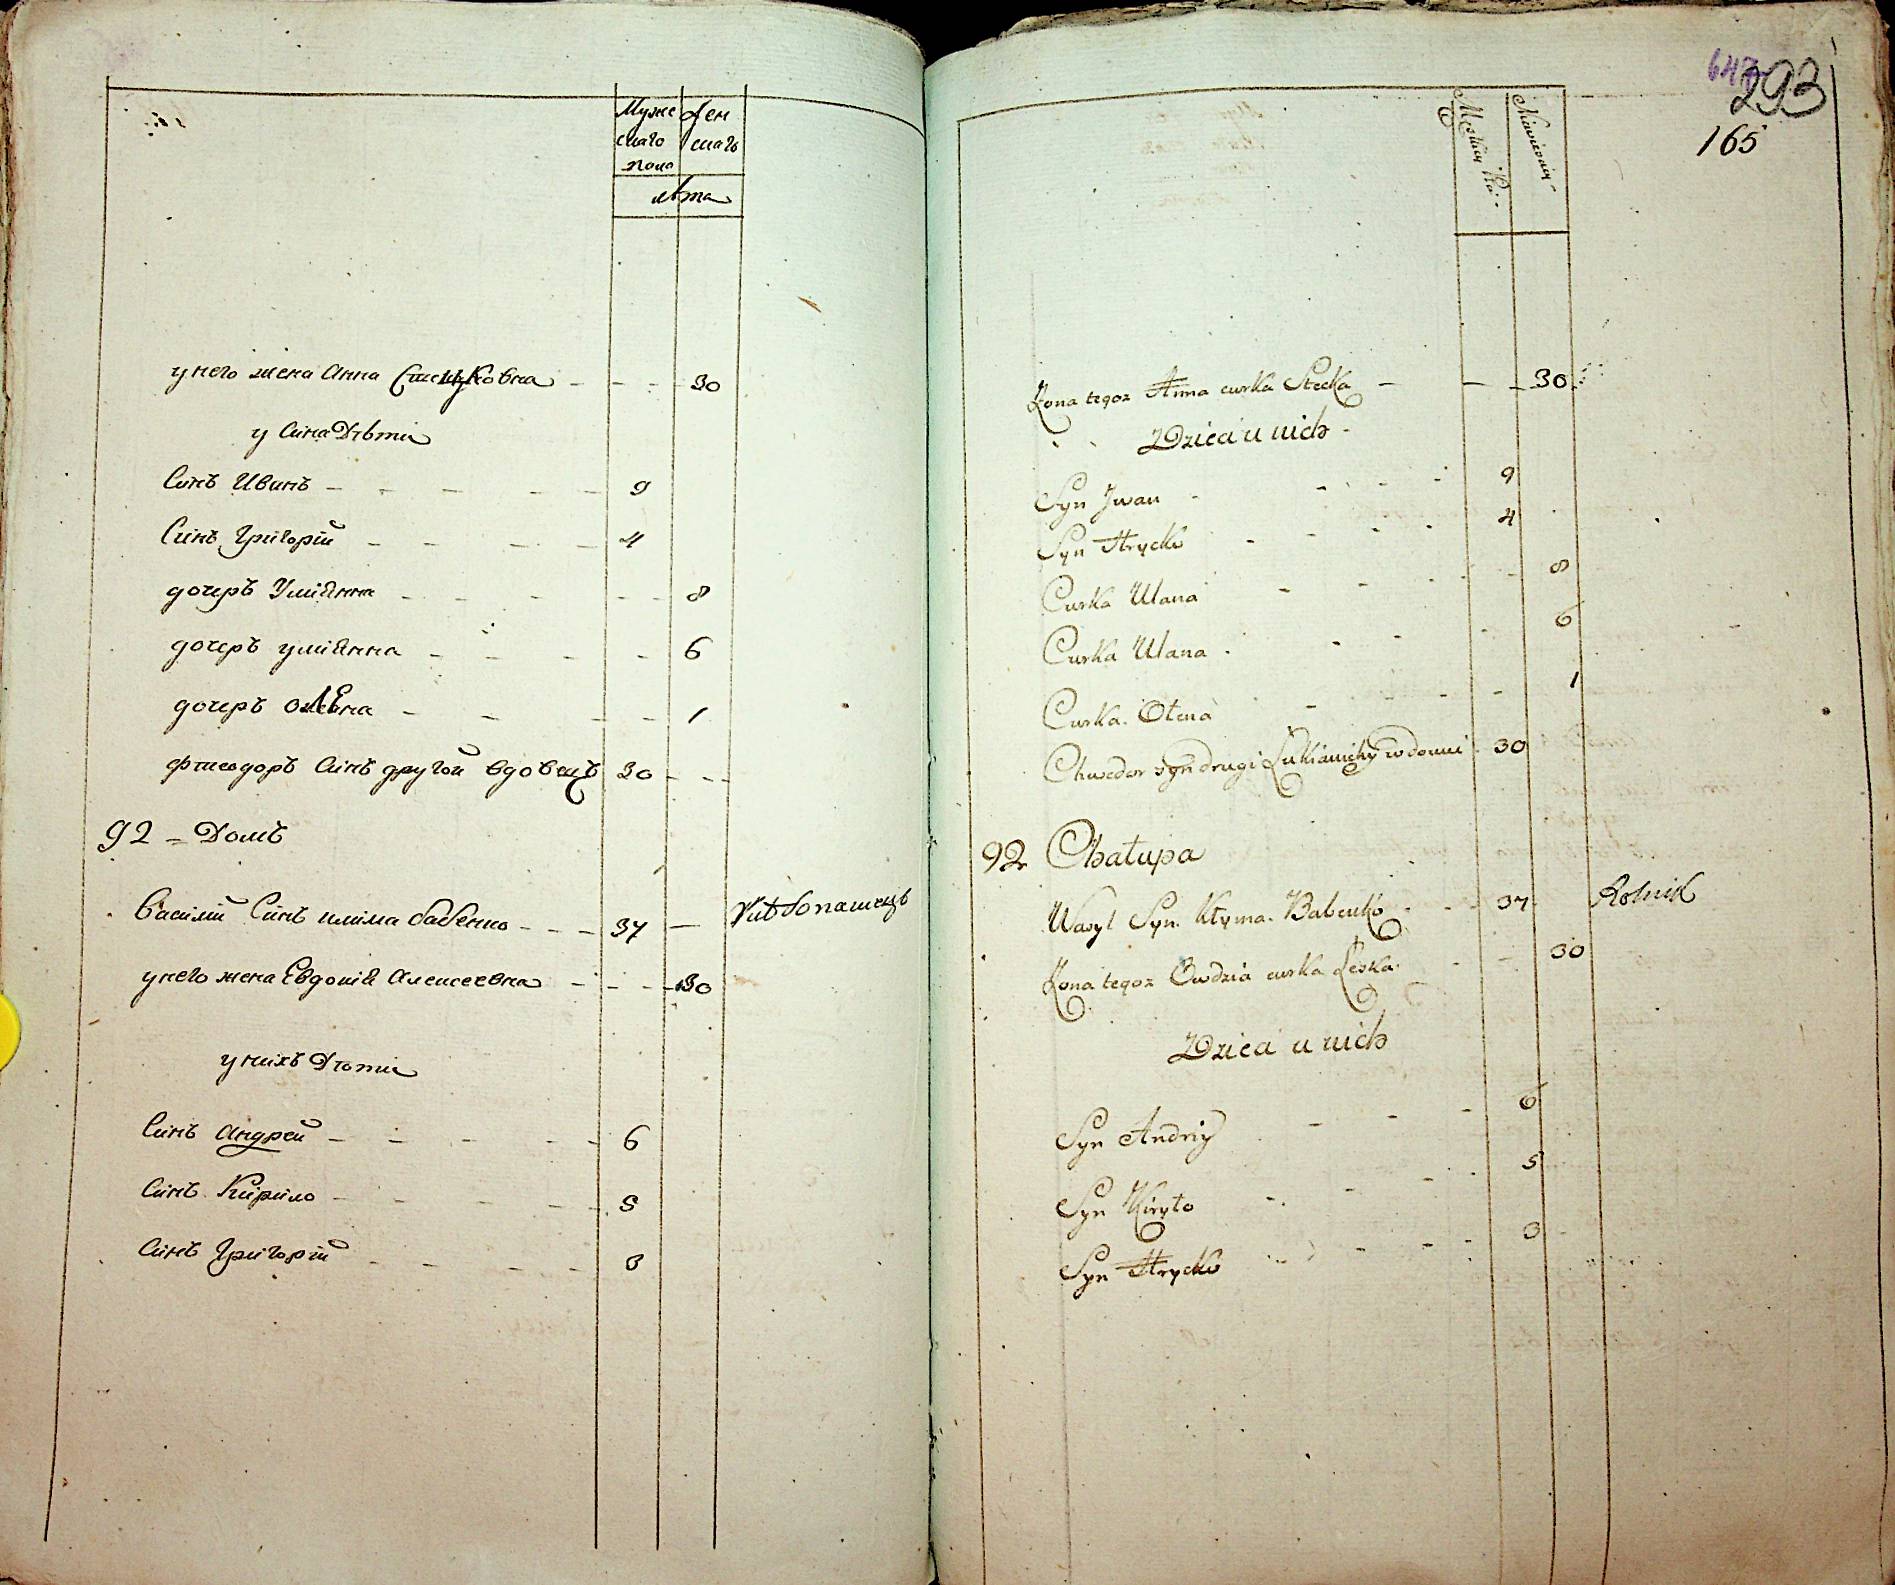 Муже
скаго
пола
Жен
скаго
лѣта
у него жена Анна Стецковна - - - 30
у сина Дѣти
Синъ Иванъ - - - - - 9
Синъ Григорій - - - - 4
дочеръ Улиянна - - - - - 8
дочеръ улиянна - - - - 6
дочеръ олена - - - - 1
фтеодоръ синъ другой вдовецъ 30 - - -
92 - Домъ
Василий Синъ клима бабенко - - - 37 — Хлѣбопашецъ
у него жена Евдокия Алексеевна - - - - 30
у нихъ Дѣти
Синъ Андрей - - - - - 6
Синъ Кирило - - - - - 5
Синъ Григорій - - - - 3
647
293
165
Żona tegoż Anna curka Stecka - - - 30
Dzieci u nich
Syn Jwan - - - - 9
Syn Hrycko - - - - 4
Curka Ulana - - - - 8
Curka Ulana - - - - 6
Curka Ołena - - - 1
Chwedor syn drugi Łukianichy wdowiec 30
92 Chałupa
Wasyl Syn Kłyma Babenko - - - 37 Rolnik
Żona tegoż Owdzia curka Leska - - 30
Dzieci u nich
Syn Andriy - - - 6
Syn Kiryło - - - - 5
Syn Hrycko - - - - 3